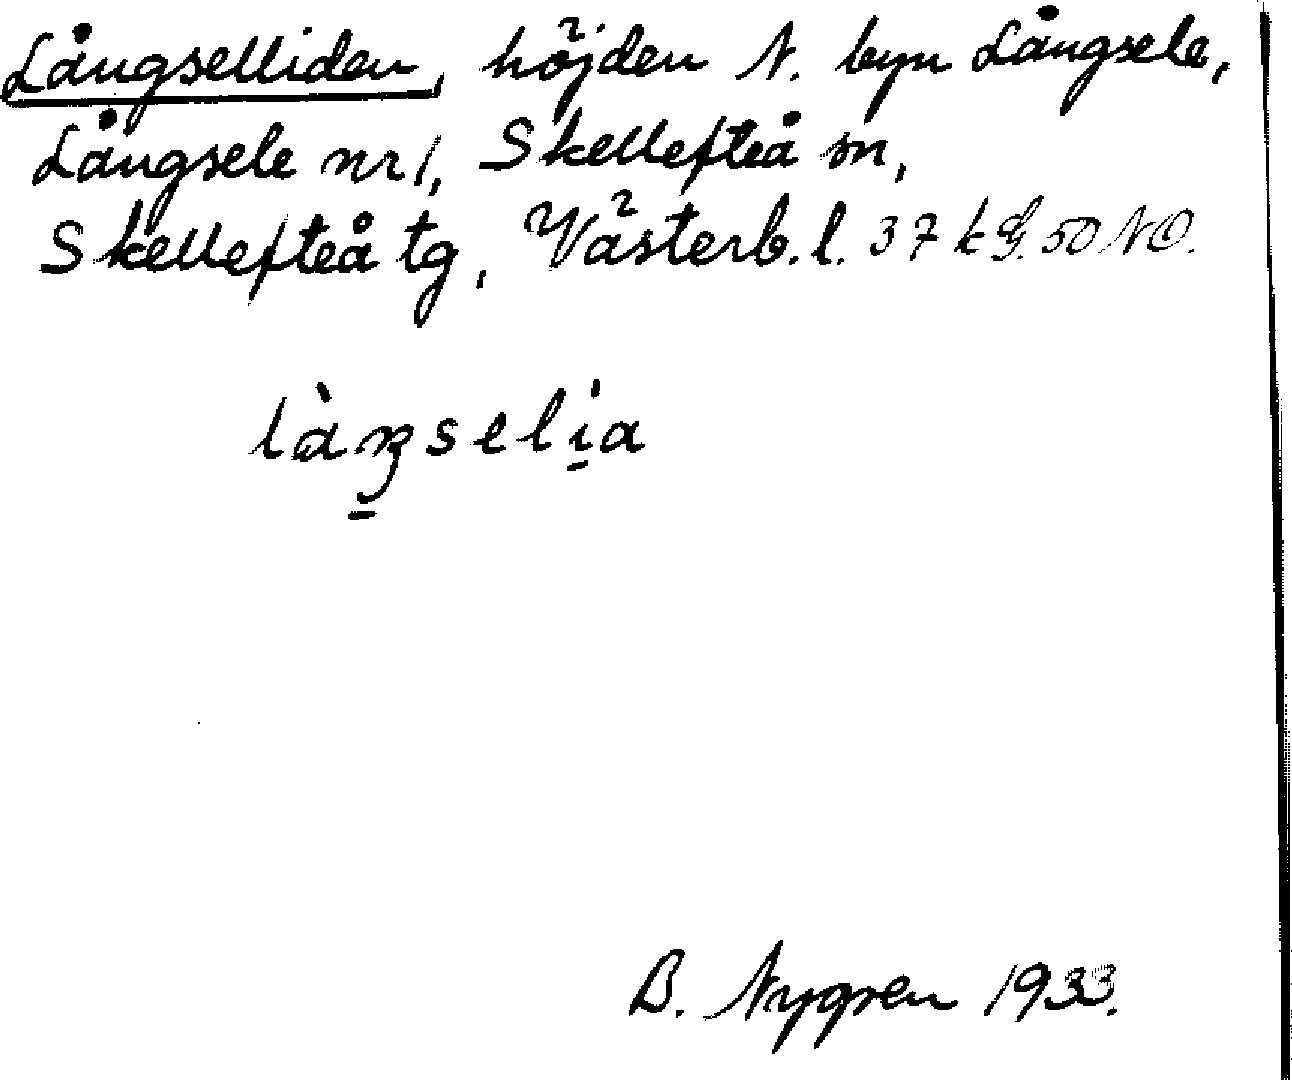 Långselliden, höjden N. byn Långsele,
Långsele nr 1, Skellefteå sn,
Skellefteå tg, Västerb. l. 37 k G. 50 NO.
làŋseli̱a
B. Nygren 1933.